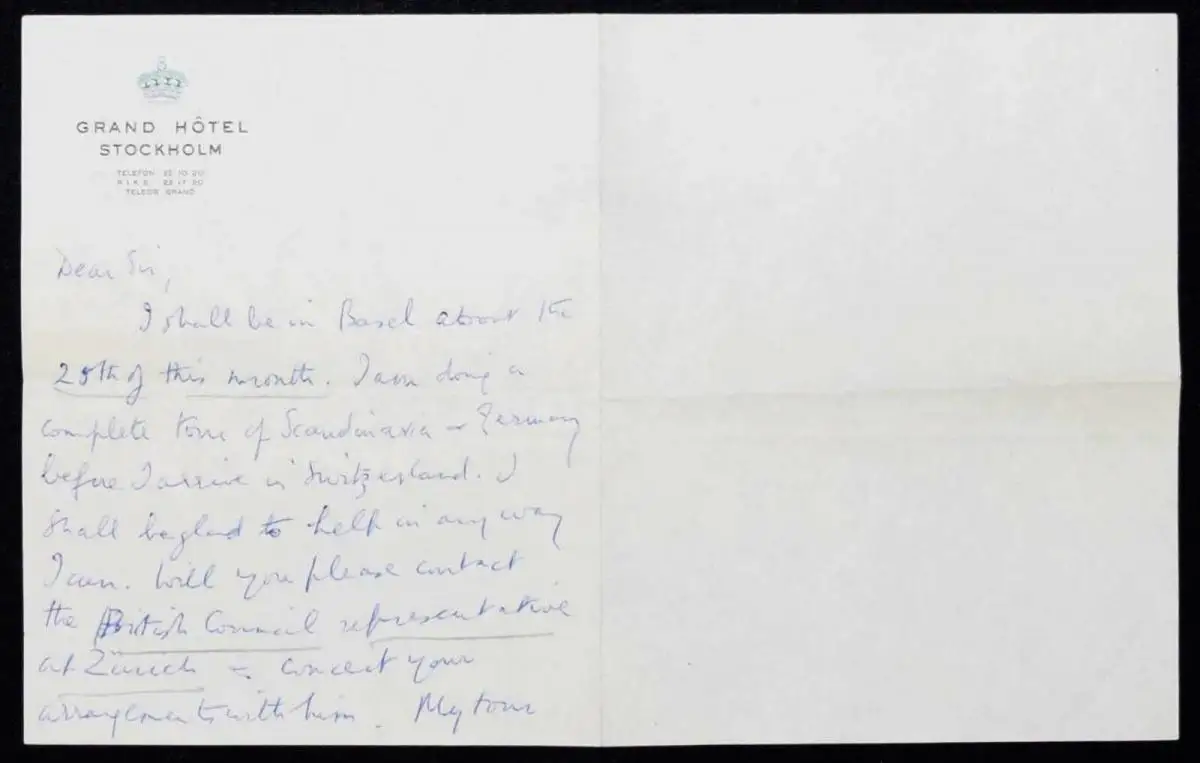 GRAND HÔTEL
STOCKHOLM
TELEFON 22 10 20
RIKS 23 17 20
TELEGR GRAND
Dear Sir,
I shall be in Basel about the
25th of this month. I am doing a
complete tour of Scandinavia & Germany
before I arrive in Switzerland. I
shall be glad to help in any way
I can. Will you please contact
the British Council representative
at Zürich & concert your
arrangements with him. My tour